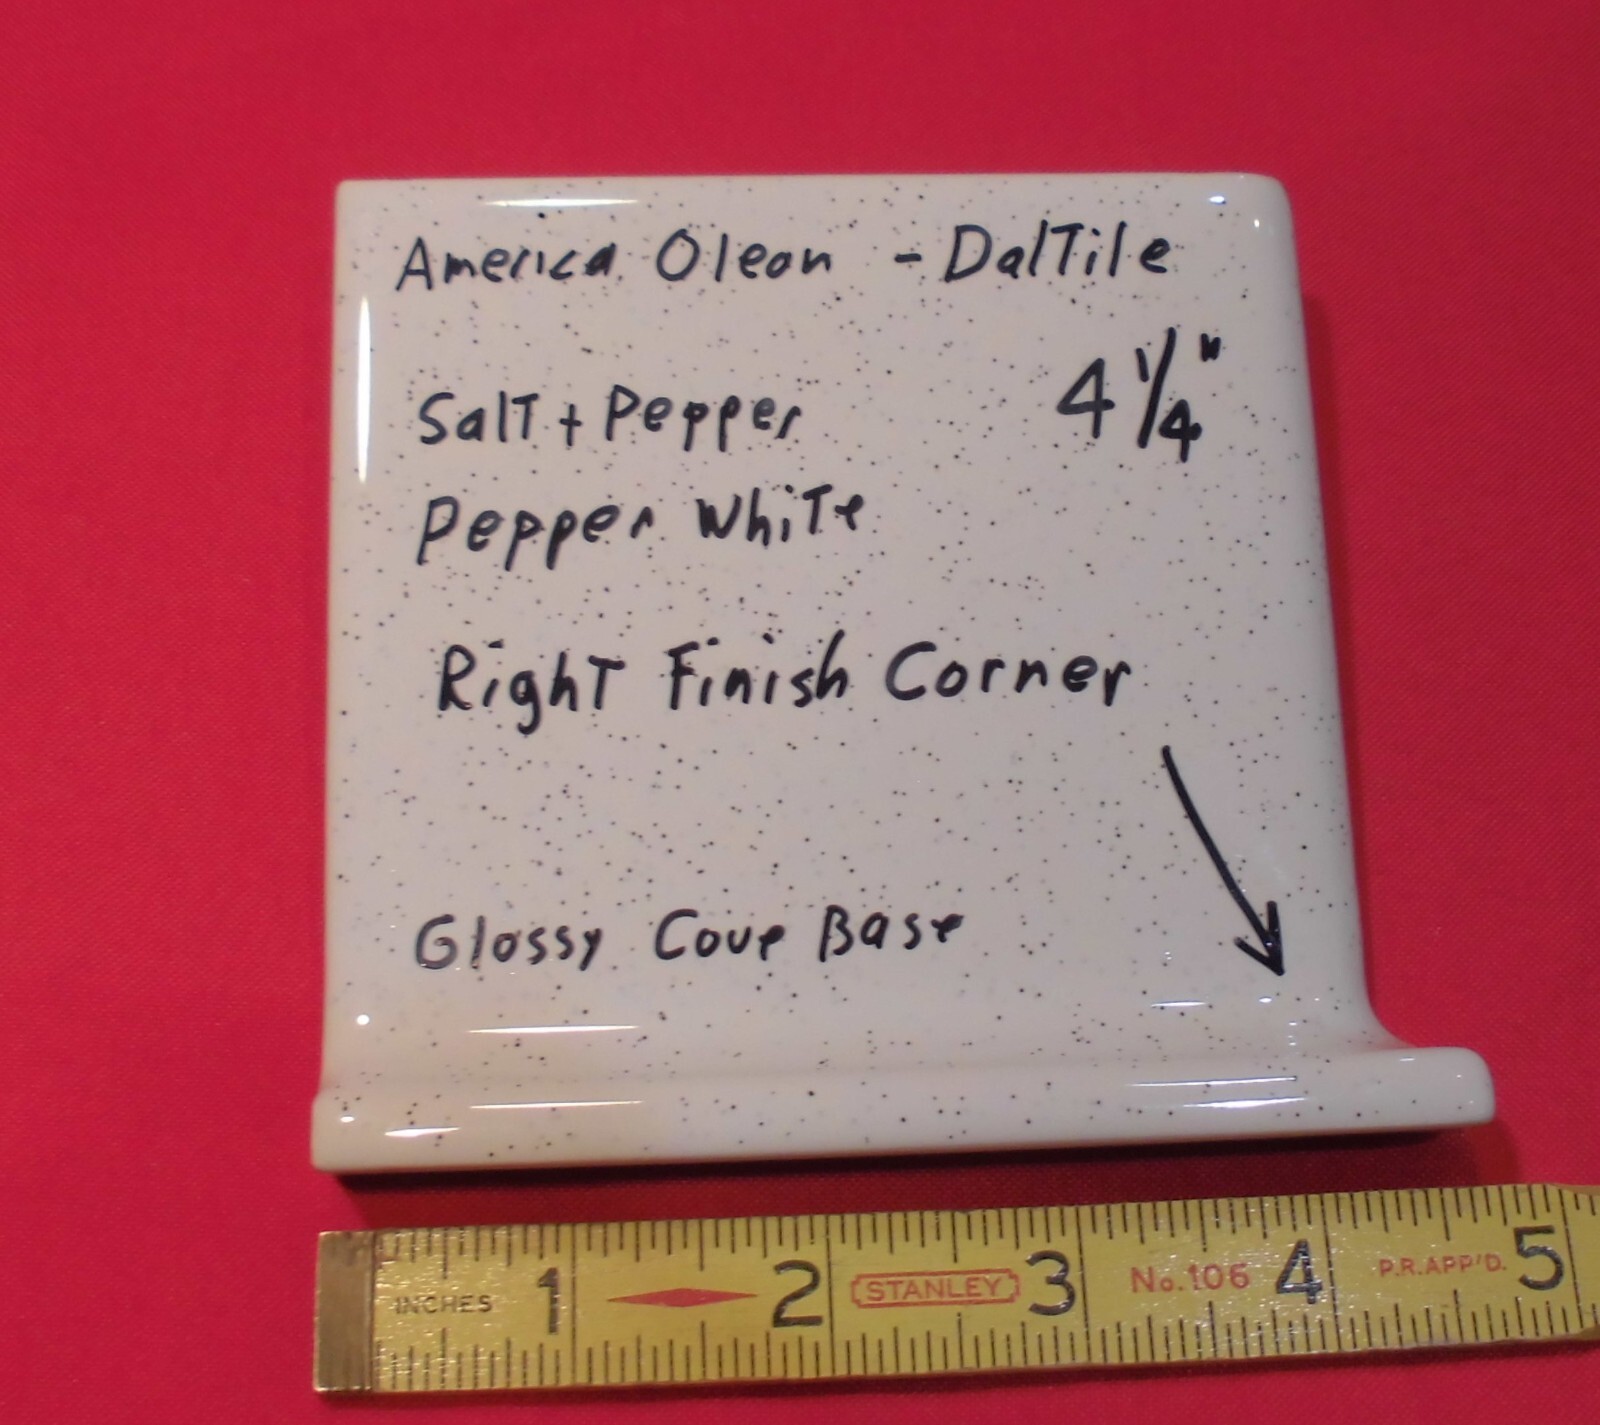 America Olean - DalTile
Salt + Pepper 4 1/4"
Pepper White
Right Finish Corner
Glossy Cove Base
INCHES 1 2 STANLEY 3 No. 106 4 P.R. APP'D. 5